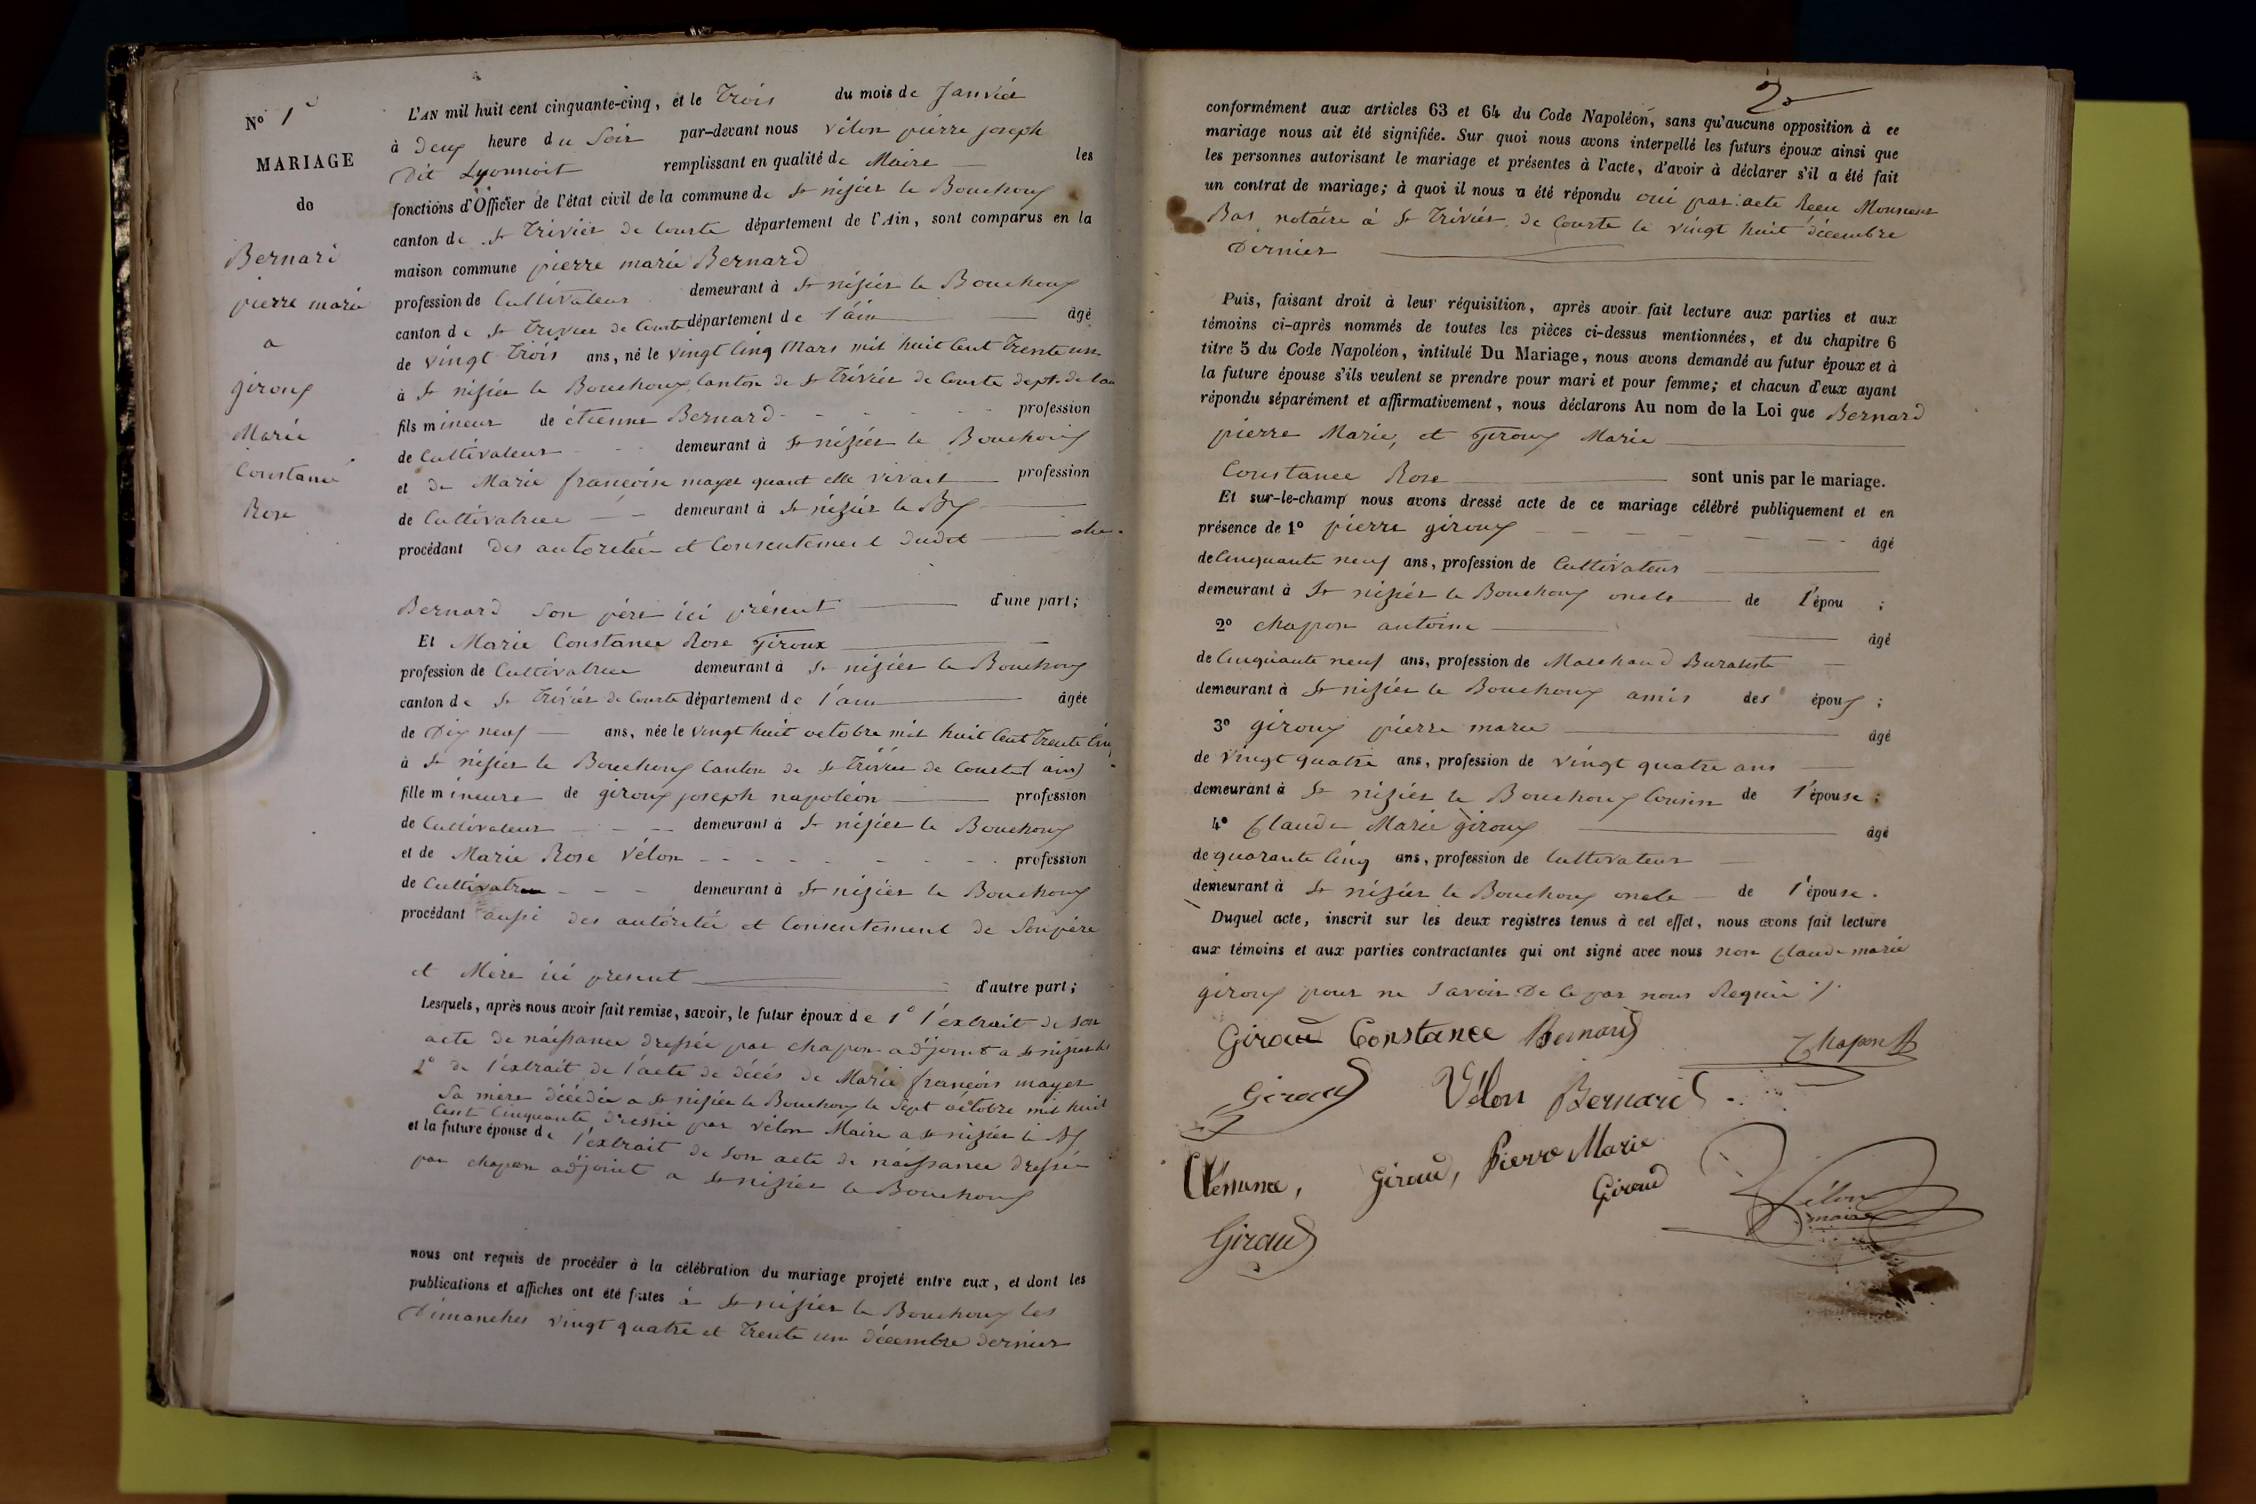 N° 1er
MARIAGE
de
Bernard
pierre marie
a
giroux
Marie
Constance
Rose
L'AN mil huit cent cinquante-cinq, et le trois du mois de Janvier
à deux heure du Soir par-devant nous vélon pierre joseph
Dit Lyonnoit remplissant en qualité de Maire les
fonctions d'Officier de l'état civil de la commune de St nisier le Bouchoux
canton de St trivier de Courte département de l'Ain, sont comparus en la
maison commune pierre marie Bernard
profession de Cultivateur demeurant à St nisier le Bouchoux
canton de St trivier de Courte département de l'ain âgé
de vingt trois ans, né le vingt cinq Mars mil huit cent trente un
à St nisier le Bouchoux Canton de St trivier de Courte dept. de l'ain
fils mineur de étienne Bernard profession
de Cultivateur demeurant à St nisier le Bouchoux
et de Marie françoise mayet quant elle vivait profession
de Cultivatrice demeurant à St nisier le Bx
procédant des autoritée et Consentement dudit
Bernard Son père ici présent d'une part;
Et Marie Constance Rose Giroux
profession de Cultivatrice demeurant à St nisier le Bouchoux
canton de St trivier de Courte département de l'ain âgée
de Dix neuf ans, née le vingt huit octobre mil huit Cent trente cinq
à St nisier le Bouchoux Canton de St trivier de Courte (ain)
fille mineure de giroux joseph napoléon profession
de Cultivateur demeurant à St nisier le Bouchoux
et de Marie Rose vélon profession
de Cultivatrice demeurant à St nisier le Bouchoux
procédant aussi des autoritée et Consentement de Son père
et Mère ici présent d'autre part;
Lesquels, après nous avoir fait remise, savoir, le futur époux de 1° l'extrait de son
acte de naissance dressée par chapon adjoint a St nisier
2° de l'extrait de l'acte de décés de Marie françois mayet
Sa mère décédée a St nisier le Bouchoux le Sept octobre mil huit
Cent Cinquante dressé par vélon Maire a St nisier le Bx
et la future épouse de l'extrait de Son acte de naissance dressée
par chapon adjoint a St nisier le Bouchoux
nous ont requis de procéder à la célébration du mariage projeté entre eux, et dont les
publications et affiches ont été faites à St nisier le Bouchoux les
Dimanches vingt quatre et trente un décembre dernier
2
conformément aux articles 63 et 64 du Code Napoléon, sans qu'aucune opposition à ce
mariage nous ait été signifiée. Sur quoi nous avons interpellé les futurs époux ainsi que
les personnes autorisant le mariage et présentes à l'acte, d'avoir à déclarer s'il a été fait
un contrat de mariage; à quoi il nous a été répondu oui par acte Recu Monsieur
Bas notaire à St trivier de Courte le vingt huit décembre
Dernier
Puis, faisant droit à leur réquisition, après avoir fait lecture aux parties et aux
témoins ci-après nommés de toutes les pièces ci-dessus mentionnées, et du chapitre 6
titre 5 du Code Napoléon, intitulé Du Mariage, nous avons demandé au futur époux et à
la future épouse s'ils veulent se prendre pour mari et pour femme; et chacun d'eux ayant
répondu séparément et affirmativement, nous déclarons Au nom de la Loi que Bernard
pierre Marie, et Giroux Marie
Constance Rose sont unis par le mariage.
Et sur-le-champ nous avons dressé acte de ce mariage célébré publiquement et en
présence de 1° pierre giroux âgé
de Cinquante neuf ans, profession de Cultivateur
demeurant à St nisier le Bouchoux oncle de l'épou ;
2° chapon antoine âgé
de Cinquante neuf ans, profession de Marchand Buraliste
demeurant à St nisier le Bouchoux amis des époux ;
3° giroux pierre marie âgé
de vingt quatre ans, profession de vingt quatre ans
demeurant à St nisier le Bouchoux Cousin de l'épouse ;
4° Claude Marie giroux âgé
de quarante Cinq ans, profession de Cultivateur
demeurant à St nisier le Bouchoux oncle de l'épouse.
Duquel acte, inscrit sur les deux registres tenus à cet effet, nous avons fait lecture
aux témoins et aux parties contractantes qui ont signé avec nous non Claude marie
giroux pour ne Savoir De ce par nous Requis
Giroud Constance Bernard Chapon
Giroud Vélon Bernard
Clémence, Giroud, Pierre Marie
Giroud
Giroud
Vélon
maire